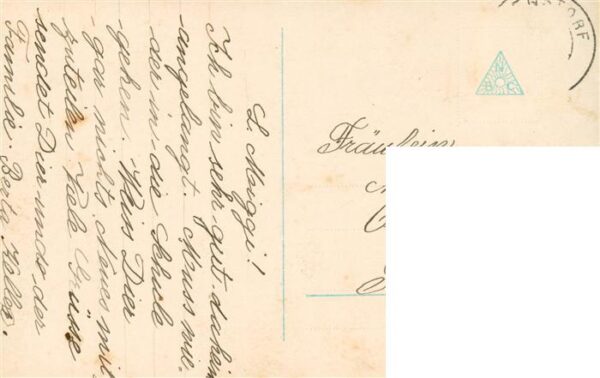 L. Meiggi!
Ich bin sehr gut daheim
angelangt. Muss wie-
der in die Schule
gehen. Weis Dier
gar nichts Neues mit-
zuteilen Viele Grüsse
sendet Dier und der
Familie. Berta Keller.
Fräulein
BNC